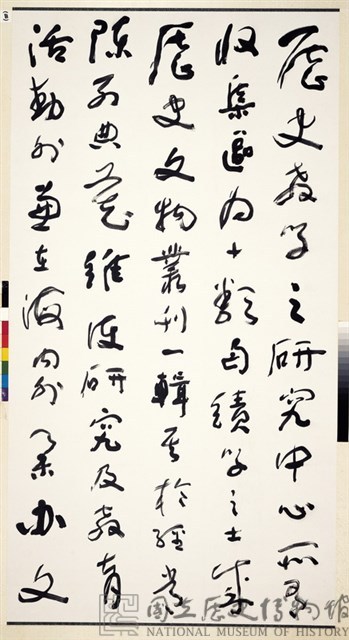 歷史教學之研究中心所
收集區為十類由績學之士
歷史文物叢刊一輯至於經常
陳列典藏維護研究及教育
活動外兼在海內外舉辦文
國立歷史博物館
NATIONAL MUSEUM OF HISTORY